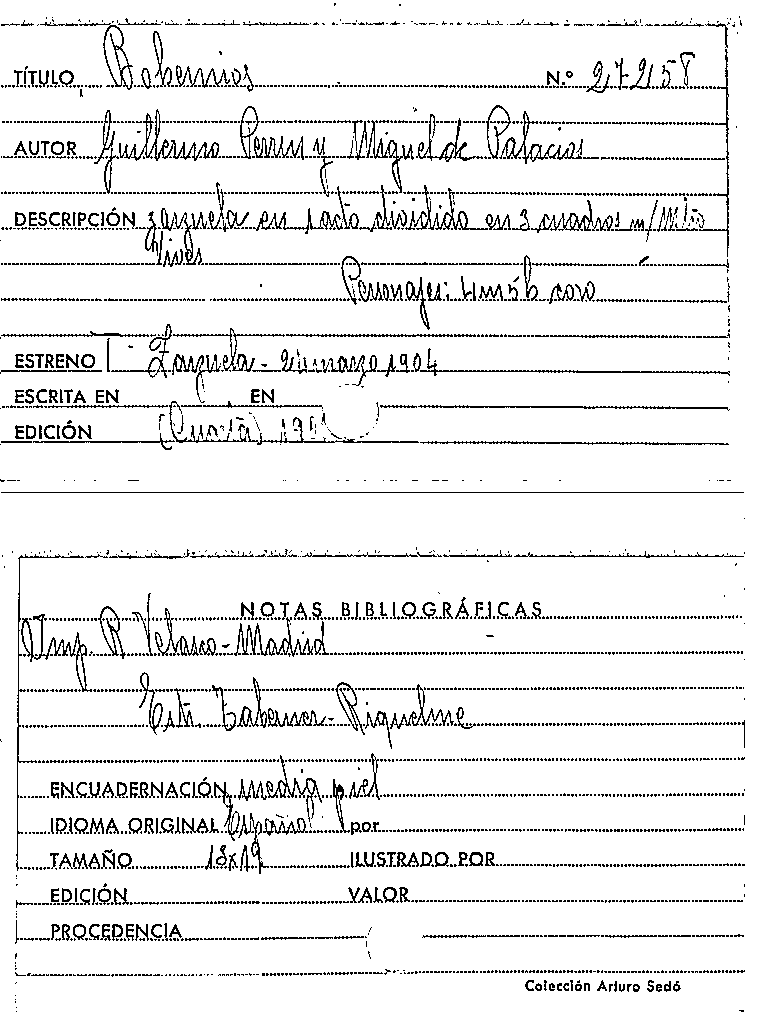 TÍTULO Bohemios N.º 272158
AUTOR Guillermo Perrin y Miguel de Palacios
DESCRIPCIÓN zarzuela en 1 acto dividido en 3 cuadros m/
Vives
Personajes: 4m 5h coro
ESTRENO T. Zarzuela - 24 marzo 1904
ESCRITA EN EN
EDICIÓN (Cuarta)
NOTAS BIBLIOGRÁFICAS
Imp. R Velasco - Madrid
Estr. Taberner - Riquelme
ENCUADERNACIÓN media piel
IDIOMA ORIGINAL Español por
TAMAÑO 13x19 ILUSTRADO POR
EDICIÓN VALOR
PROCEDENCIA
Colección Arturo Sedó